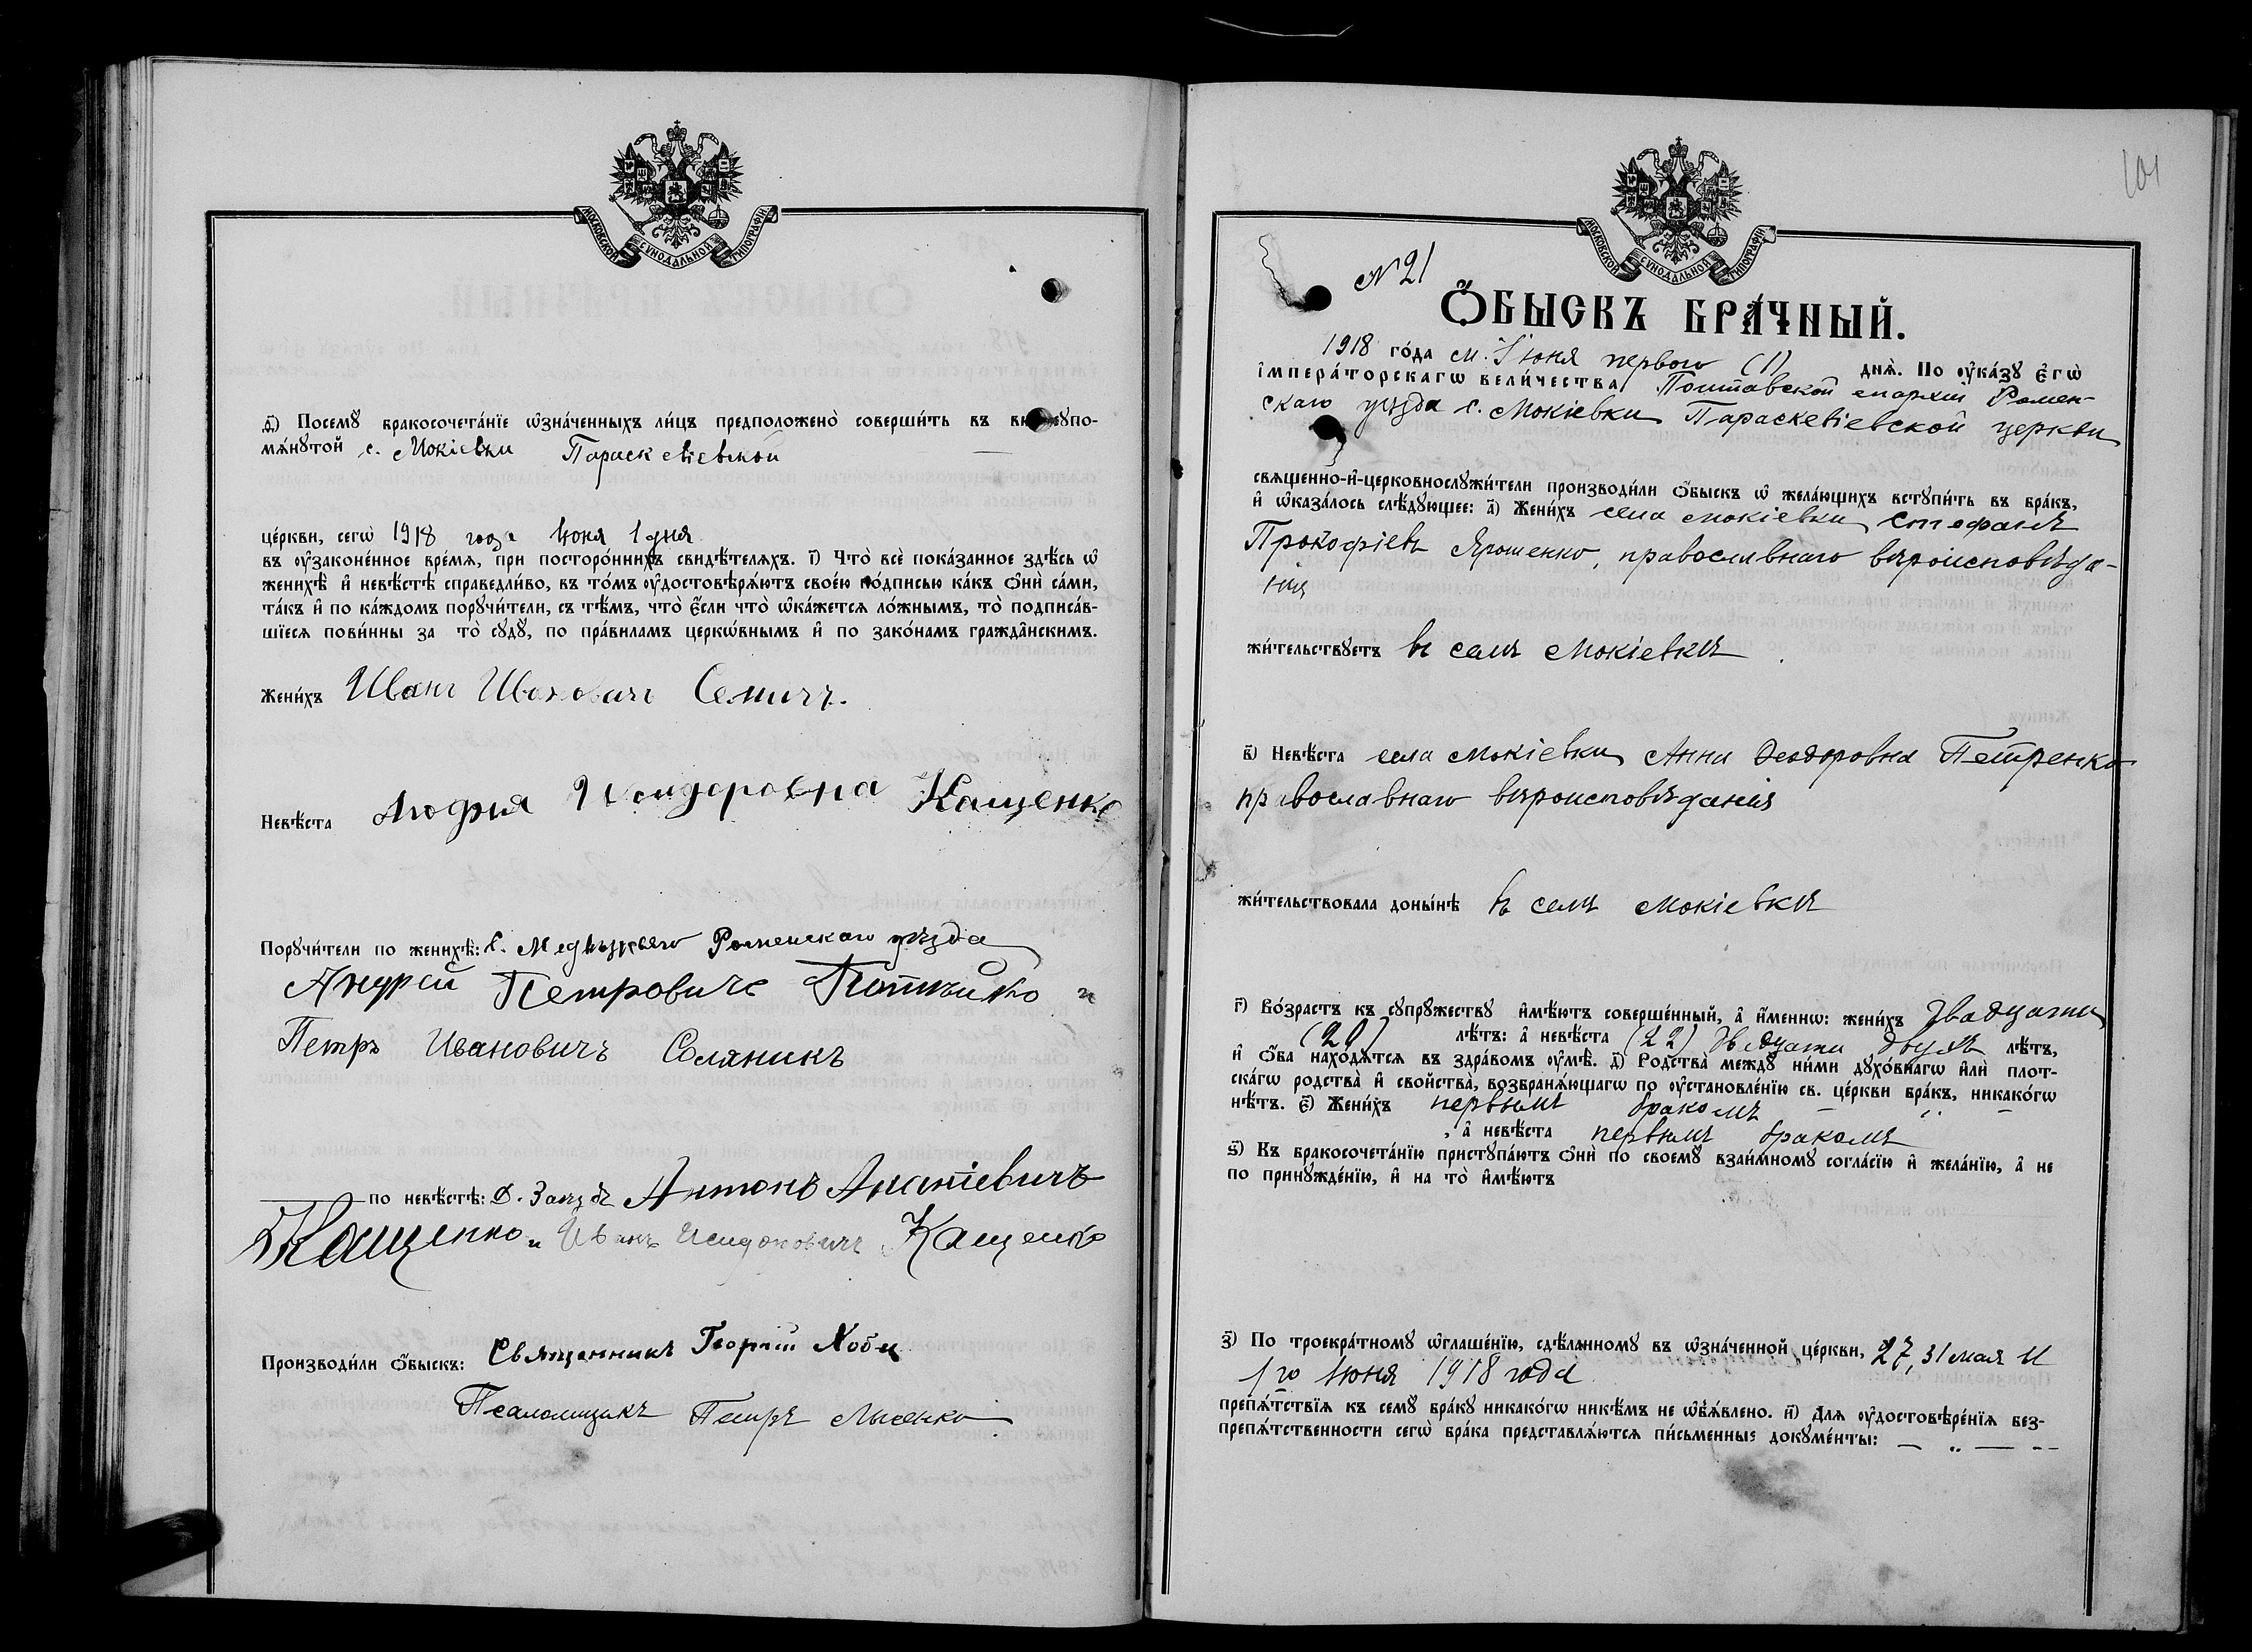 МОСКОВСКОЙ СѴНОДАЛЬНОЙ ТИПОГРАФІИ
д҃і) Посемꙋ̀ бракосочета́нїе ѡ҆зна́ченныхъ ли́цъ предположено̀ соверши́ть въ
мѧ́нꙋтой с. Мокіевки Параскевіевской
це́ркви, сегѡ̀ 1918 года Іюня 1 дня
въ ᲂу҆законе́нное вре́мѧ, при посторо́ннихъ свидѣ́телѧхъ. і҃) Что̀ всѐ пока́занное здѣ́сь ѡ҆
женихѣ̀ и҆ невѣ́стѣ справедли́во, въ то́мъ ᲂу҆достовѣрѧ́ютъ свое́ю по́дписью ка́къ ѻ҆нѝ са́ми,
та́къ и҆ по ка́ждомъ порꙋчи́тели, съ тѣ́мъ, что̀ є҆́сли что̀ ѡ҆ка́жетсѧ ло́жнымъ, то̀ подписа́в-
шїесѧ пови́нны за то̀ сꙋдꙋ̀, по пра́виламъ церко́внымъ и҆ по зако́намъ гражда́нскимъ.
Жени́хъ Иванъ Ивановичъ Семичъ.
Невѣ́ста Исидоровна Кащенко
Порꙋчи́тели по женихѣ̀: с. Медвѣжьяго Роменскаго уѣзда
Андрей Петровичъ и
Петръ Ивановичъ Соляникъ
по невѣ́стѣ: Антонъ Анатіевичъ
Кащенко и Иванъ Исидоровичъ Кащенко
Производи́ли ѻ҆́быскъ: Священникъ Георгій
Псаломщикъ Петръ Лысенко
101
МОСКОВСКОЙ СѴНОДАЛЬНОЙ ТИПОГРАФІИ
N 21
Ѻ҆́БЫСКЪ БРА́ЧНЫЙ.
1918 го́да м. Іюня перваго (1) днѧ̀. По ᲂу҆ка́зꙋ є҆гѡ̀
і҆мпера́торскагѡ вели́чества, Полтавской епархіи Ромен-
скаго уѣзда с. Мокіевки Параскевіевской церкви
свѧщенно-и҆-церковнослꙋжи́тели производи́ли ѻ҆́быскъ ѡ҆ жела́ющихъ встꙋпи́ть въ бра́къ,
и҆ ѡ҆каза́лось слѣ́дꙋющее: а҃) Жени́хъ села Мокіевки Стефанъ
Прокофіевъ Ярошенко, православнаго вѣроисповѣда-
нія
жи́тельствꙋетъ въ селѣ Мокіевкѣ
в҃) Невѣ́ста села Мокіевки Анна Ѳеодоровна Петренко
православнаго вѣроисповѣданія
жи́тельствовала доны́нѣ въ селѣ Мокіевкѣ
г҃) Во́зрастъ къ сꙋпрꙋ́жествꙋ и҆мѣ́ютъ соверше́нный, а҆ и҆́меннѡ: жени́хъ двадцати
(20) лѣ́тъ: а҆ невѣ́ста (22) двадцати двухъ лѣ́тъ,
и҆ ѻ҆́ба нахо́дѧтсѧ въ здра́вомъ ᲂу҆мѣ̀. д҃) Родства̀ междꙋ̀ ни́ми дꙋхо́внагѡ и҆лѝ плот-
ска́гѡ родства̀ и҆ сво́йства, возбранѧ́ющагѡ по ᲂу҆становле́нїю св. це́ркви бра́къ, никако́гѡ
нѣ́тъ. є҃) Жени́хъ первымъ бракомъ
, а҆ невѣ́ста первымъ бракомъ
ѕ҃) Къ бракосочета́нїю пристꙋпа́ютъ ѻ҆нѝ по своемꙋ̀ взаи́мномꙋ согла́сїю и҆ жела́нїю, а҆ не
по принꙋжде́нїю, и҆ на то̀ и҆мѣ́ютъ
з҃) По троекра́тномꙋ ѡ҆глаше́нїю, сдѣ́ланномꙋ въ ѡ҆зна́ченной це́ркви, 27, 31 мая и
1го Іюня 1918 года
препѧ́тствїѧ къ семꙋ̀ бра́кꙋ никако́гѡ никѣ́мъ не ѡ҆б̾ѧ́влено. и҃) Длѧ ᲂу҆достовѣре́нїѧ без-
препѧ́тственности сегѡ̀ бра́ка представлѧ́ютсѧ пи́сьменные докꙋме́нты: — „ — --